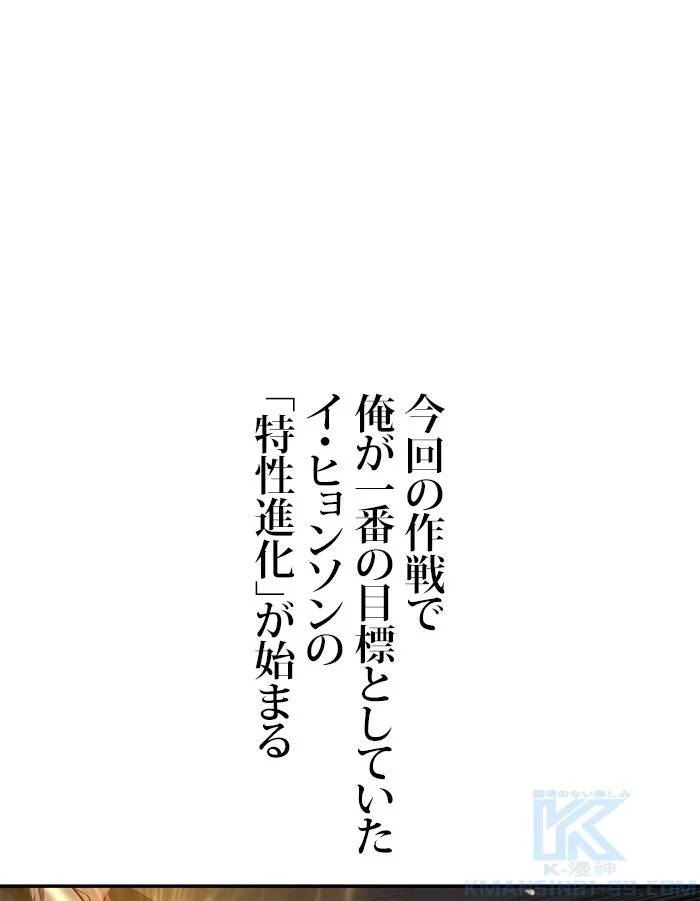 今回の作戦で
俺が一番の目標としていた
イ・ヒョンソンの
「特性進化」が始まる
K-漫神
KMANSIN01-99.COM